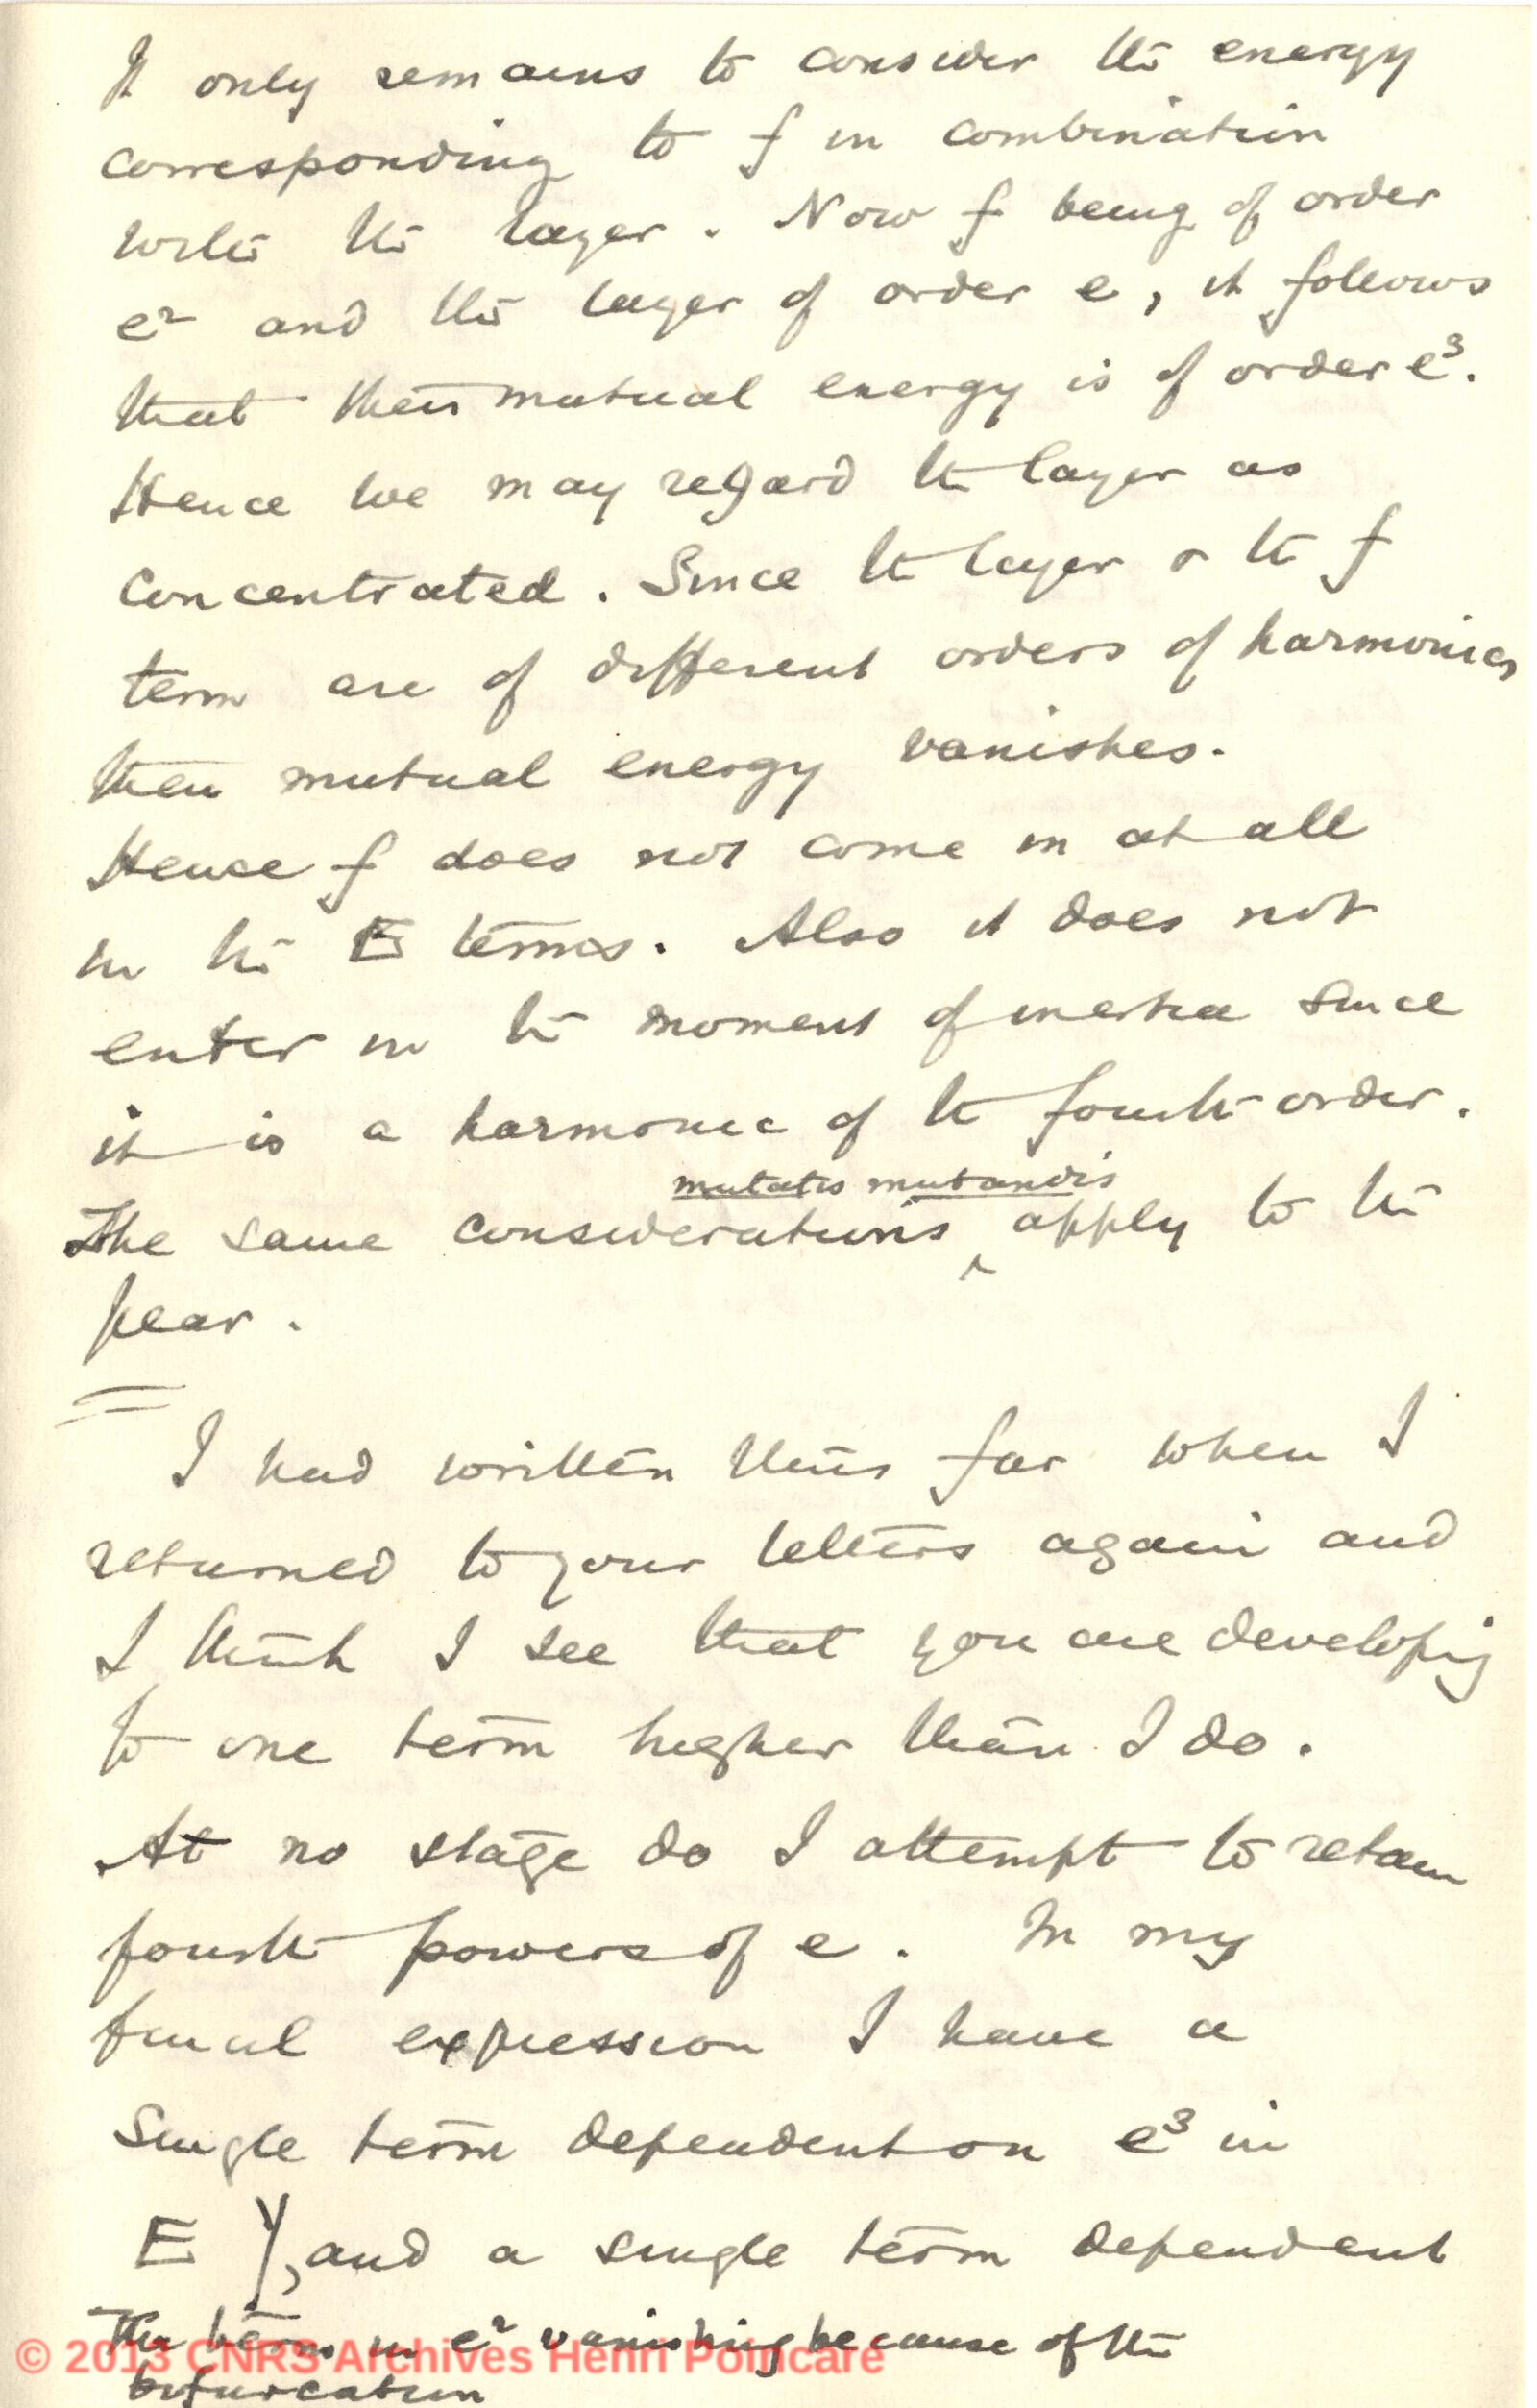 It only remains to consider the energy
corresponding to f in combination
with the layer. Now f being of order
e² and the layer of order e, it follows
that their mutual energy is of order e³.
Hence we may regard the layer as
concentrated. Since the layer & the f
term are of different orders of harmonics
their mutual energy vanishes.
Hence f does not come in at all
in the E terms. Also it does not
enter in the moment of inertia since
it is a harmonic of the fourth order.
mutatis mutandis
The same considerations ^ apply to the
pear.
I had written thus far when I
returned to your letters again and
I think I see that you are developing
to one term higher than I do.
At no stage do I attempt to retain
fourth powers of e. In my
final expression I have a
single term dependent on e³ in
E }, and a single term dependent
The terms in e² vanishing because of the
bifurcation
© 2013 CNRS Archives Henri Poincaré